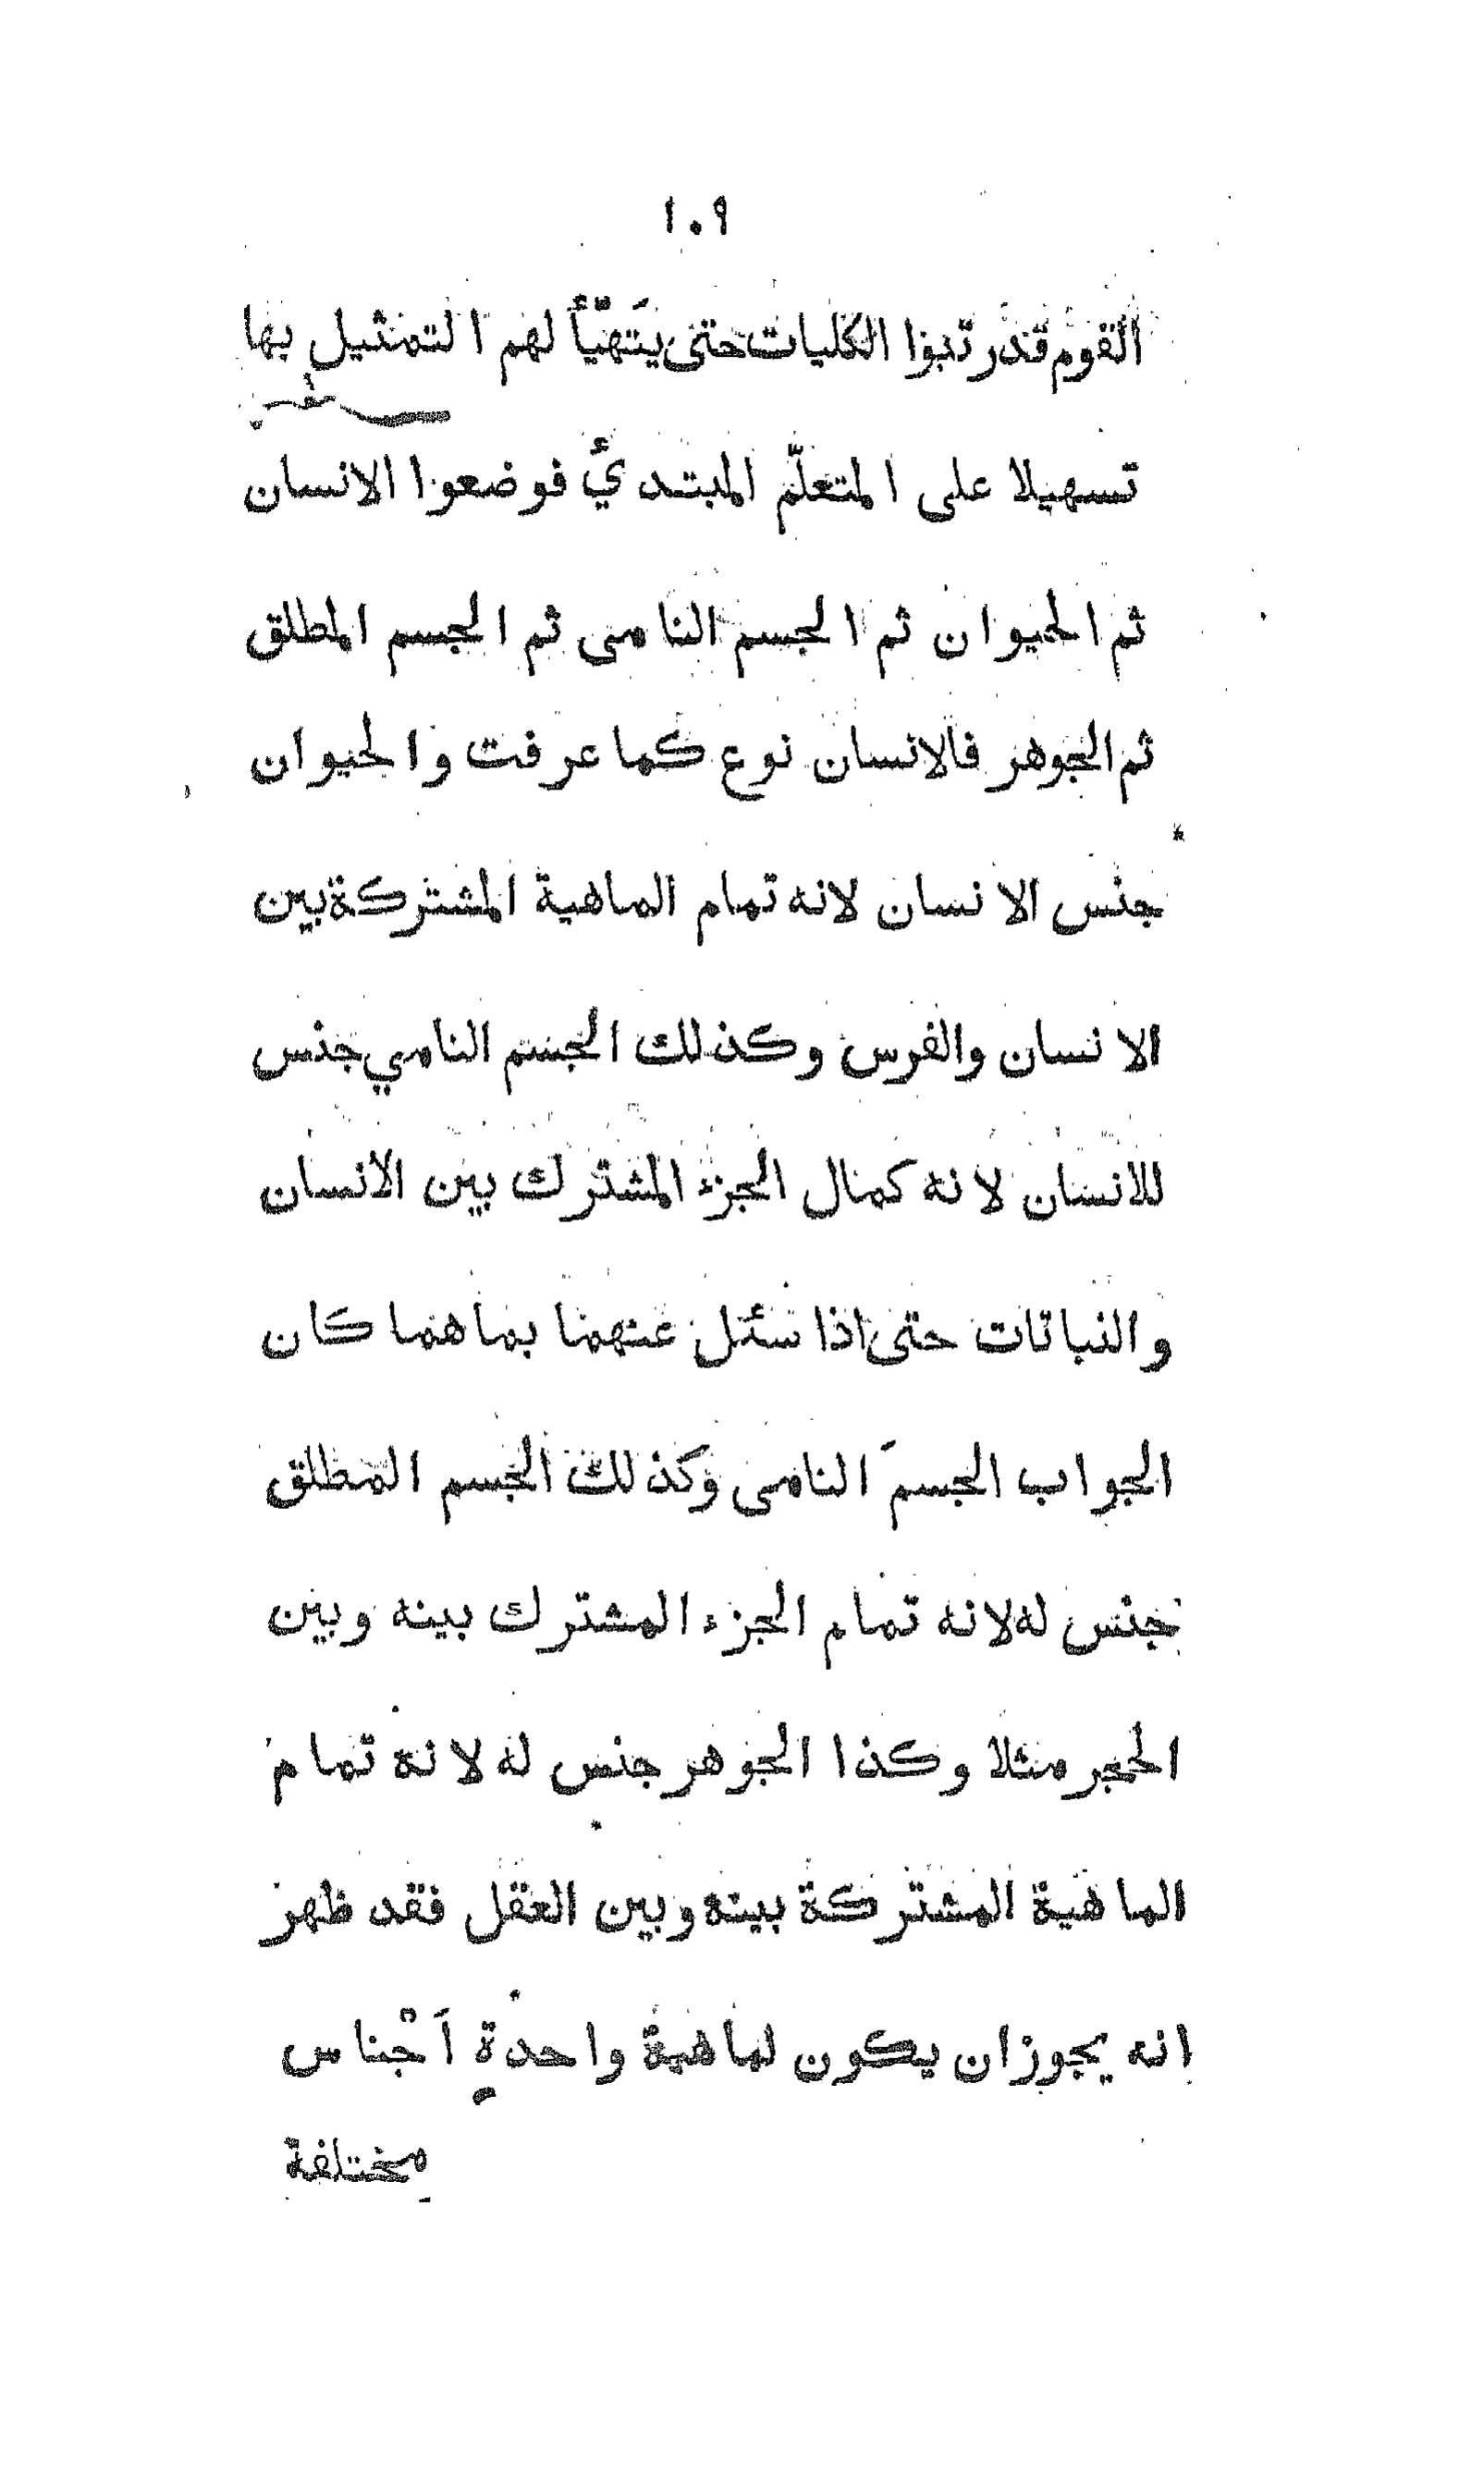 ١٠٩
القوم قد رتّبوا الكليات حتى يَتهيّأ لهم التمثيل بها
تسهيلا على المتعلّم المبتدئ فوضعوا الانسان
ثم الحيوان ثم الجسم النامى ثم الجسم المطلق
ثم الجوهر فالانسان نوع كما عرفت والحيوان
جنس الانسان لانه تمام الماهية المشتركة بين
الانسان والفرس وكذلك الجسم النامي جنس
للانسان لانه كمال الجزء المشترك بين الانسان
والنباتات حتى اذا سئل عنهما بما هما كان
الجواب الجسمَ النامى وكذلك الجسم المطلق
جنس له لانه تمام الجزء المشترك بينه وبين
الحجر مثلا وكذا الجوهر جنس له لانه تمام
الماهية المشتركة بينه وبين العقل فقد ظهر
انه يجوز ان يكون لماهية واحدةٍ اَجْناس
مختلفة